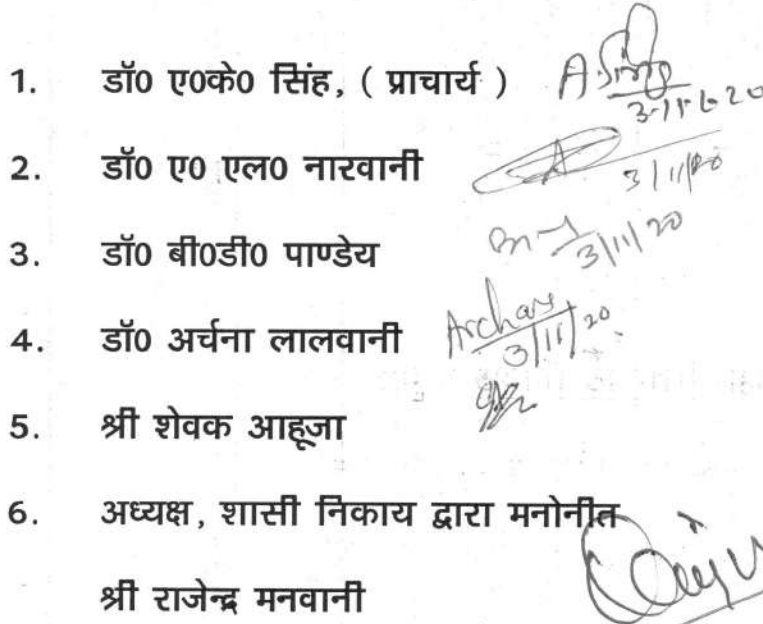 1. डॉ0 ए0के0 सिंह, ( प्राचार्य ) A.Singh
3-11-2020
2. डॉ0 ए0 एल0 नारवानी 3/11/20
3. डॉ0 बी0डी0 पाण्डेय 3/11/20
4. डॉ0 अर्चना लालवानी Archana
3/11/20
5. श्री शेवक आहूजा
6. अध्यक्ष, शासी निकाय द्वारा मनोनीत
श्री राजेन्द्र मनवानी